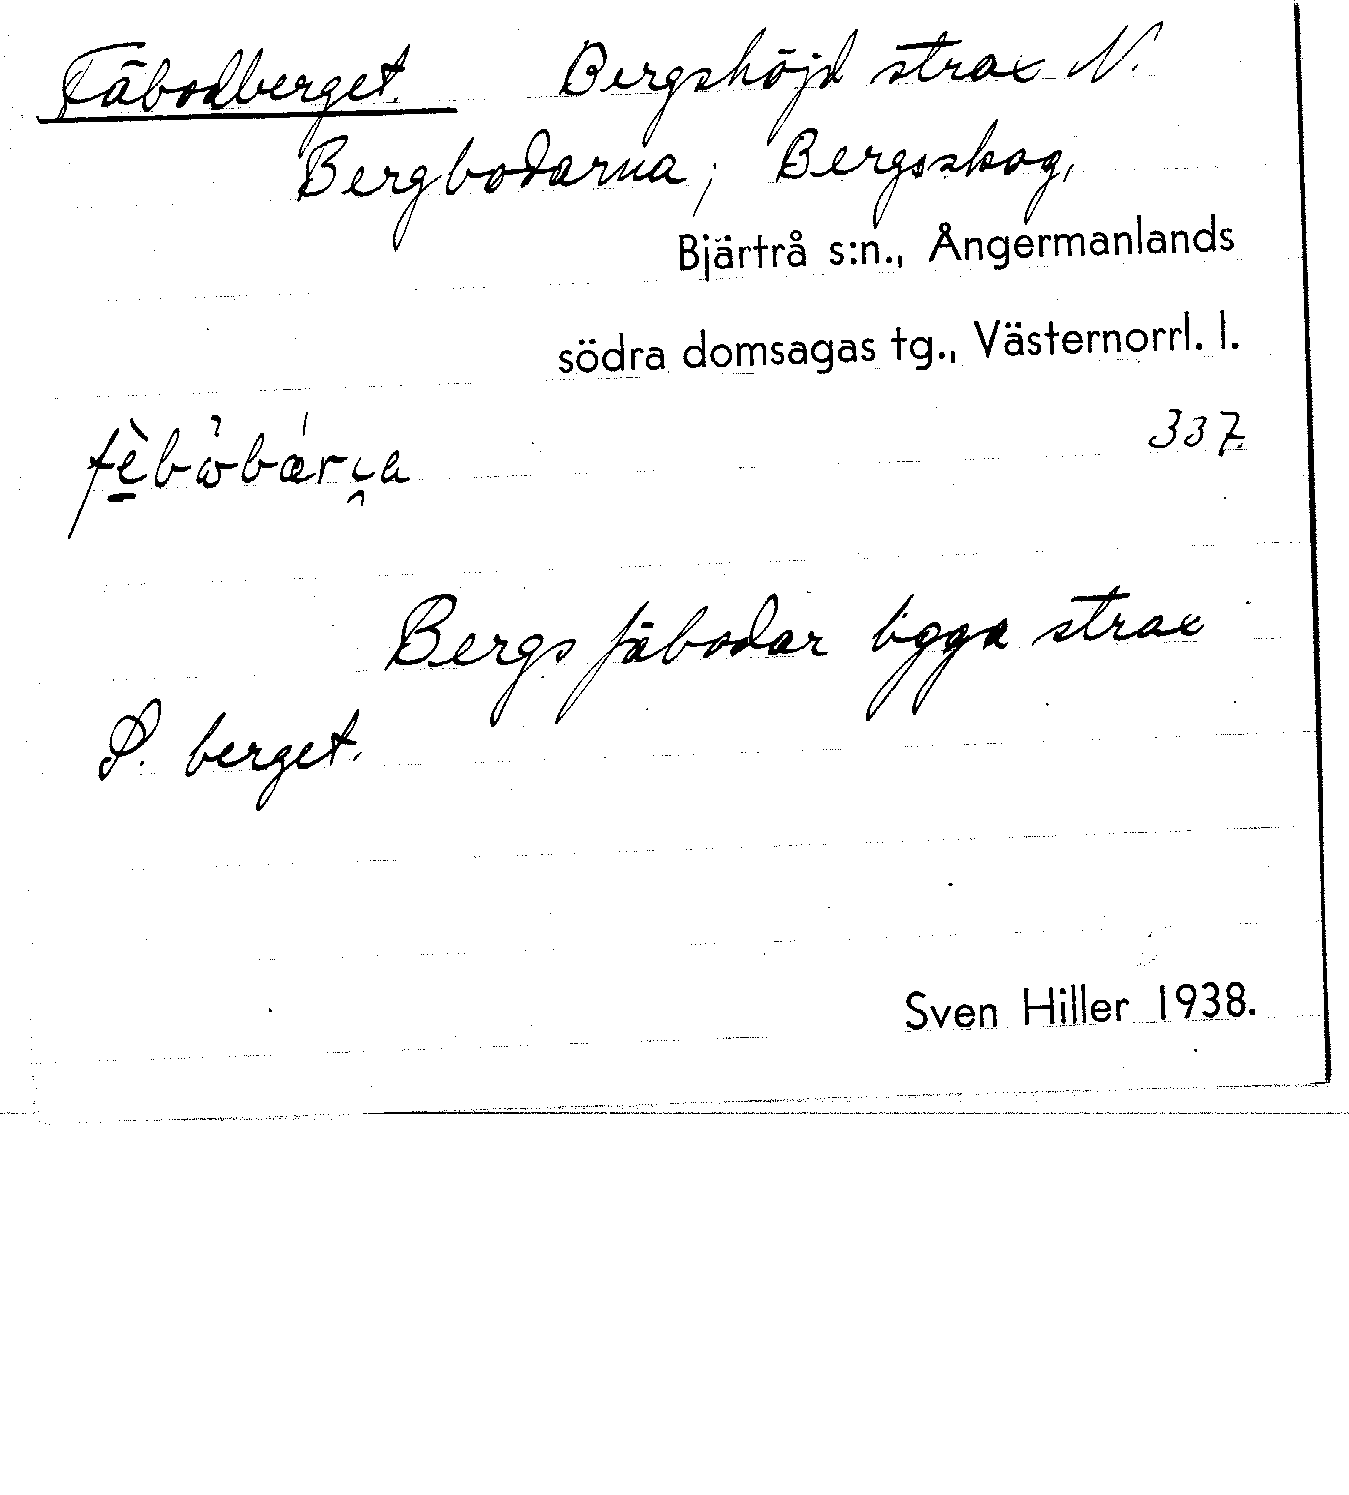 Fäbodberget. Bergshöjd strax N.
Bergbodarna; Bergsskog,
Bjärtrå s:n., Ångermanlands
södra domsagas tg., Västernorrl. l.
337.
Bergs fäbodar ligga strax
S. berget.
Sven Hiller 1938.